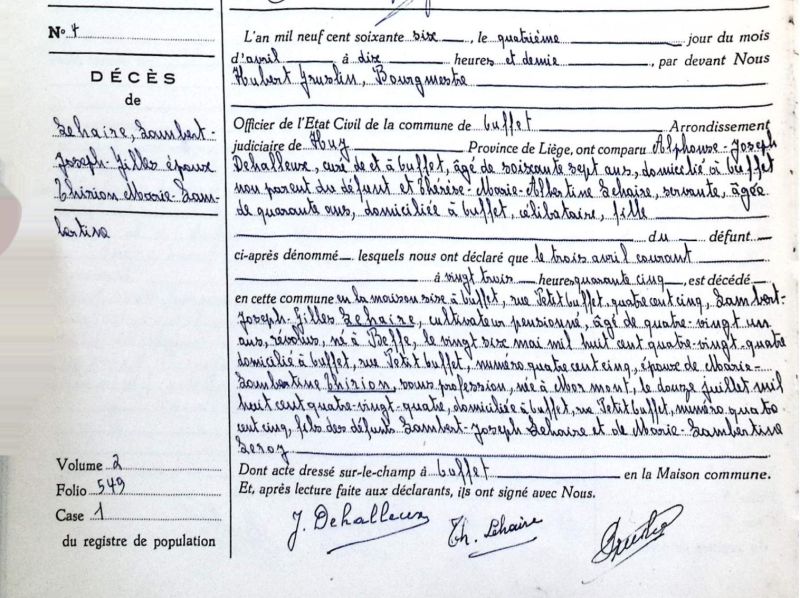 N° 4
DÉCÈS
de
Lehaire, Lambert-
Joseph-Gilles époux
Thirion Marie-Lam-
bertine
Volume 2
Folio 549
Case 1
du registre de population
L'an mil neuf cent soixante six, le quatrième jour du mois
d'avril à dix heures et demie, par devant Nous
Hubert Bourgmestre
Officier de l'Etat Civil de la commune de Buffet Arrondissement
judiciaire de Huy Province de Liège, ont comparu Alphonse-Joseph
Dehalleux, curé de et à Buffet, âgé de soixante sept ans, domicilié à Buffet
non parent du défunt et Thérèse-Marie-Albertine Lehaire, servante, âgée
de quarante ans, domiciliée à Buffet, célibataire, fille
du défunt
ci-après dénommé lesquels nous ont déclaré que le trois avril courant
à vingt trois heures quarante cinq, est décédé
en cette commune en la maison sise à Buffet, rue Petit Buffet, quatre cent cinq, Lambert-
Joseph-Gilles Lehaire, cultivateur pensionné, âgé de quatre-vingt un
ans, révolus, né à Beffe, le vingt six mai mil huit cent quatre-vingt-quatre
domicilié à Buffet, rue Petit Buffet, numéro quatre cent cinq, époux de Marie-
Lambertine Thirion, sans profession, née à Mormont, le douze juillet mil
huit cent quatre-vingt-quatre, domiciliée à Buffet, rue Petit Buffet, numéro quatre
cent cinq, fils des défunts Lambert-Joseph Lehaire et de Marie-Lambertine
Leroy
Dont acte dressé sur-le-champ à Buffet en la Maison commune.
Et, après lecture faite aux déclarants, ils ont signé avec Nous.
J. Dehalleux
Th. Lehaire